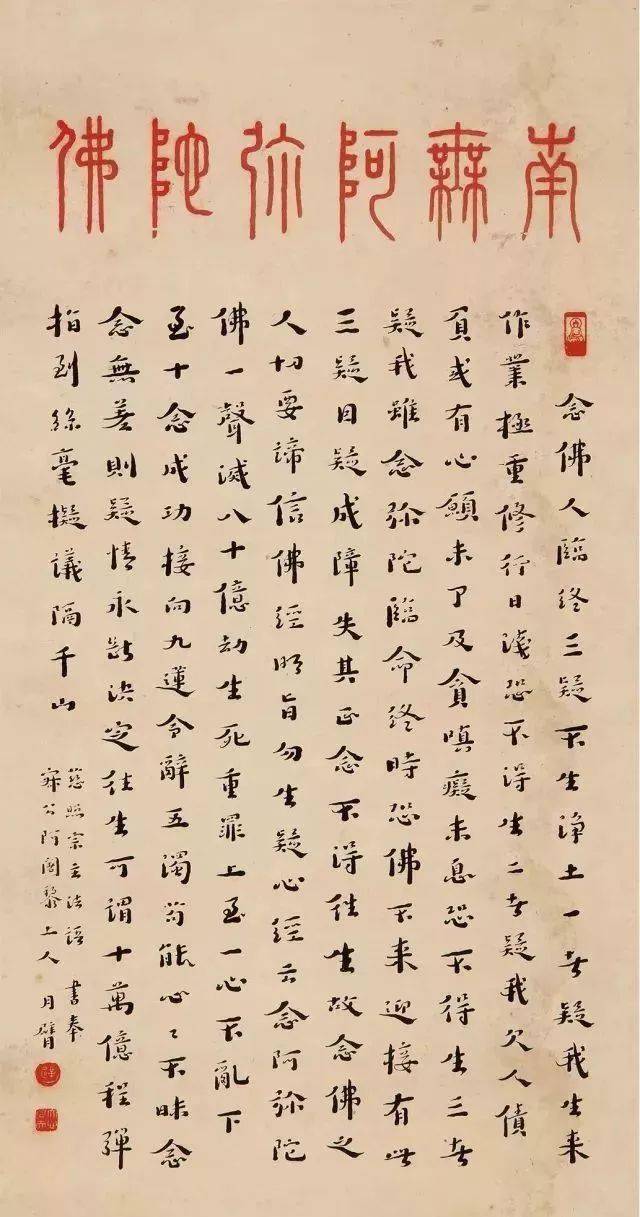 南無阿弥陀佛
念佛人臨終三疑不生淨土一者疑我生来
作業極重修行日淺恐不得生二者疑我欠人債
負或有心願未了及貪嗔癡未息恐不得生三者
疑我雖念弥陀臨命終時恐佛不来迎接有此
三疑因疑成障失其正念不得往生故念佛之
人切要諦信佛經明旨勿生疑心經云念阿弥陀
佛一聲滅八十億劫生死重罪上至一心不亂下
至十念成功接向九蓮令辭五濁苟能心々不昧念
念無差則疑情永断決定往生可謂十萬億程彈
指到絲毫擬議隔千山
慈照宗主法語 書奉
寂公阿闍黎上人 月臂